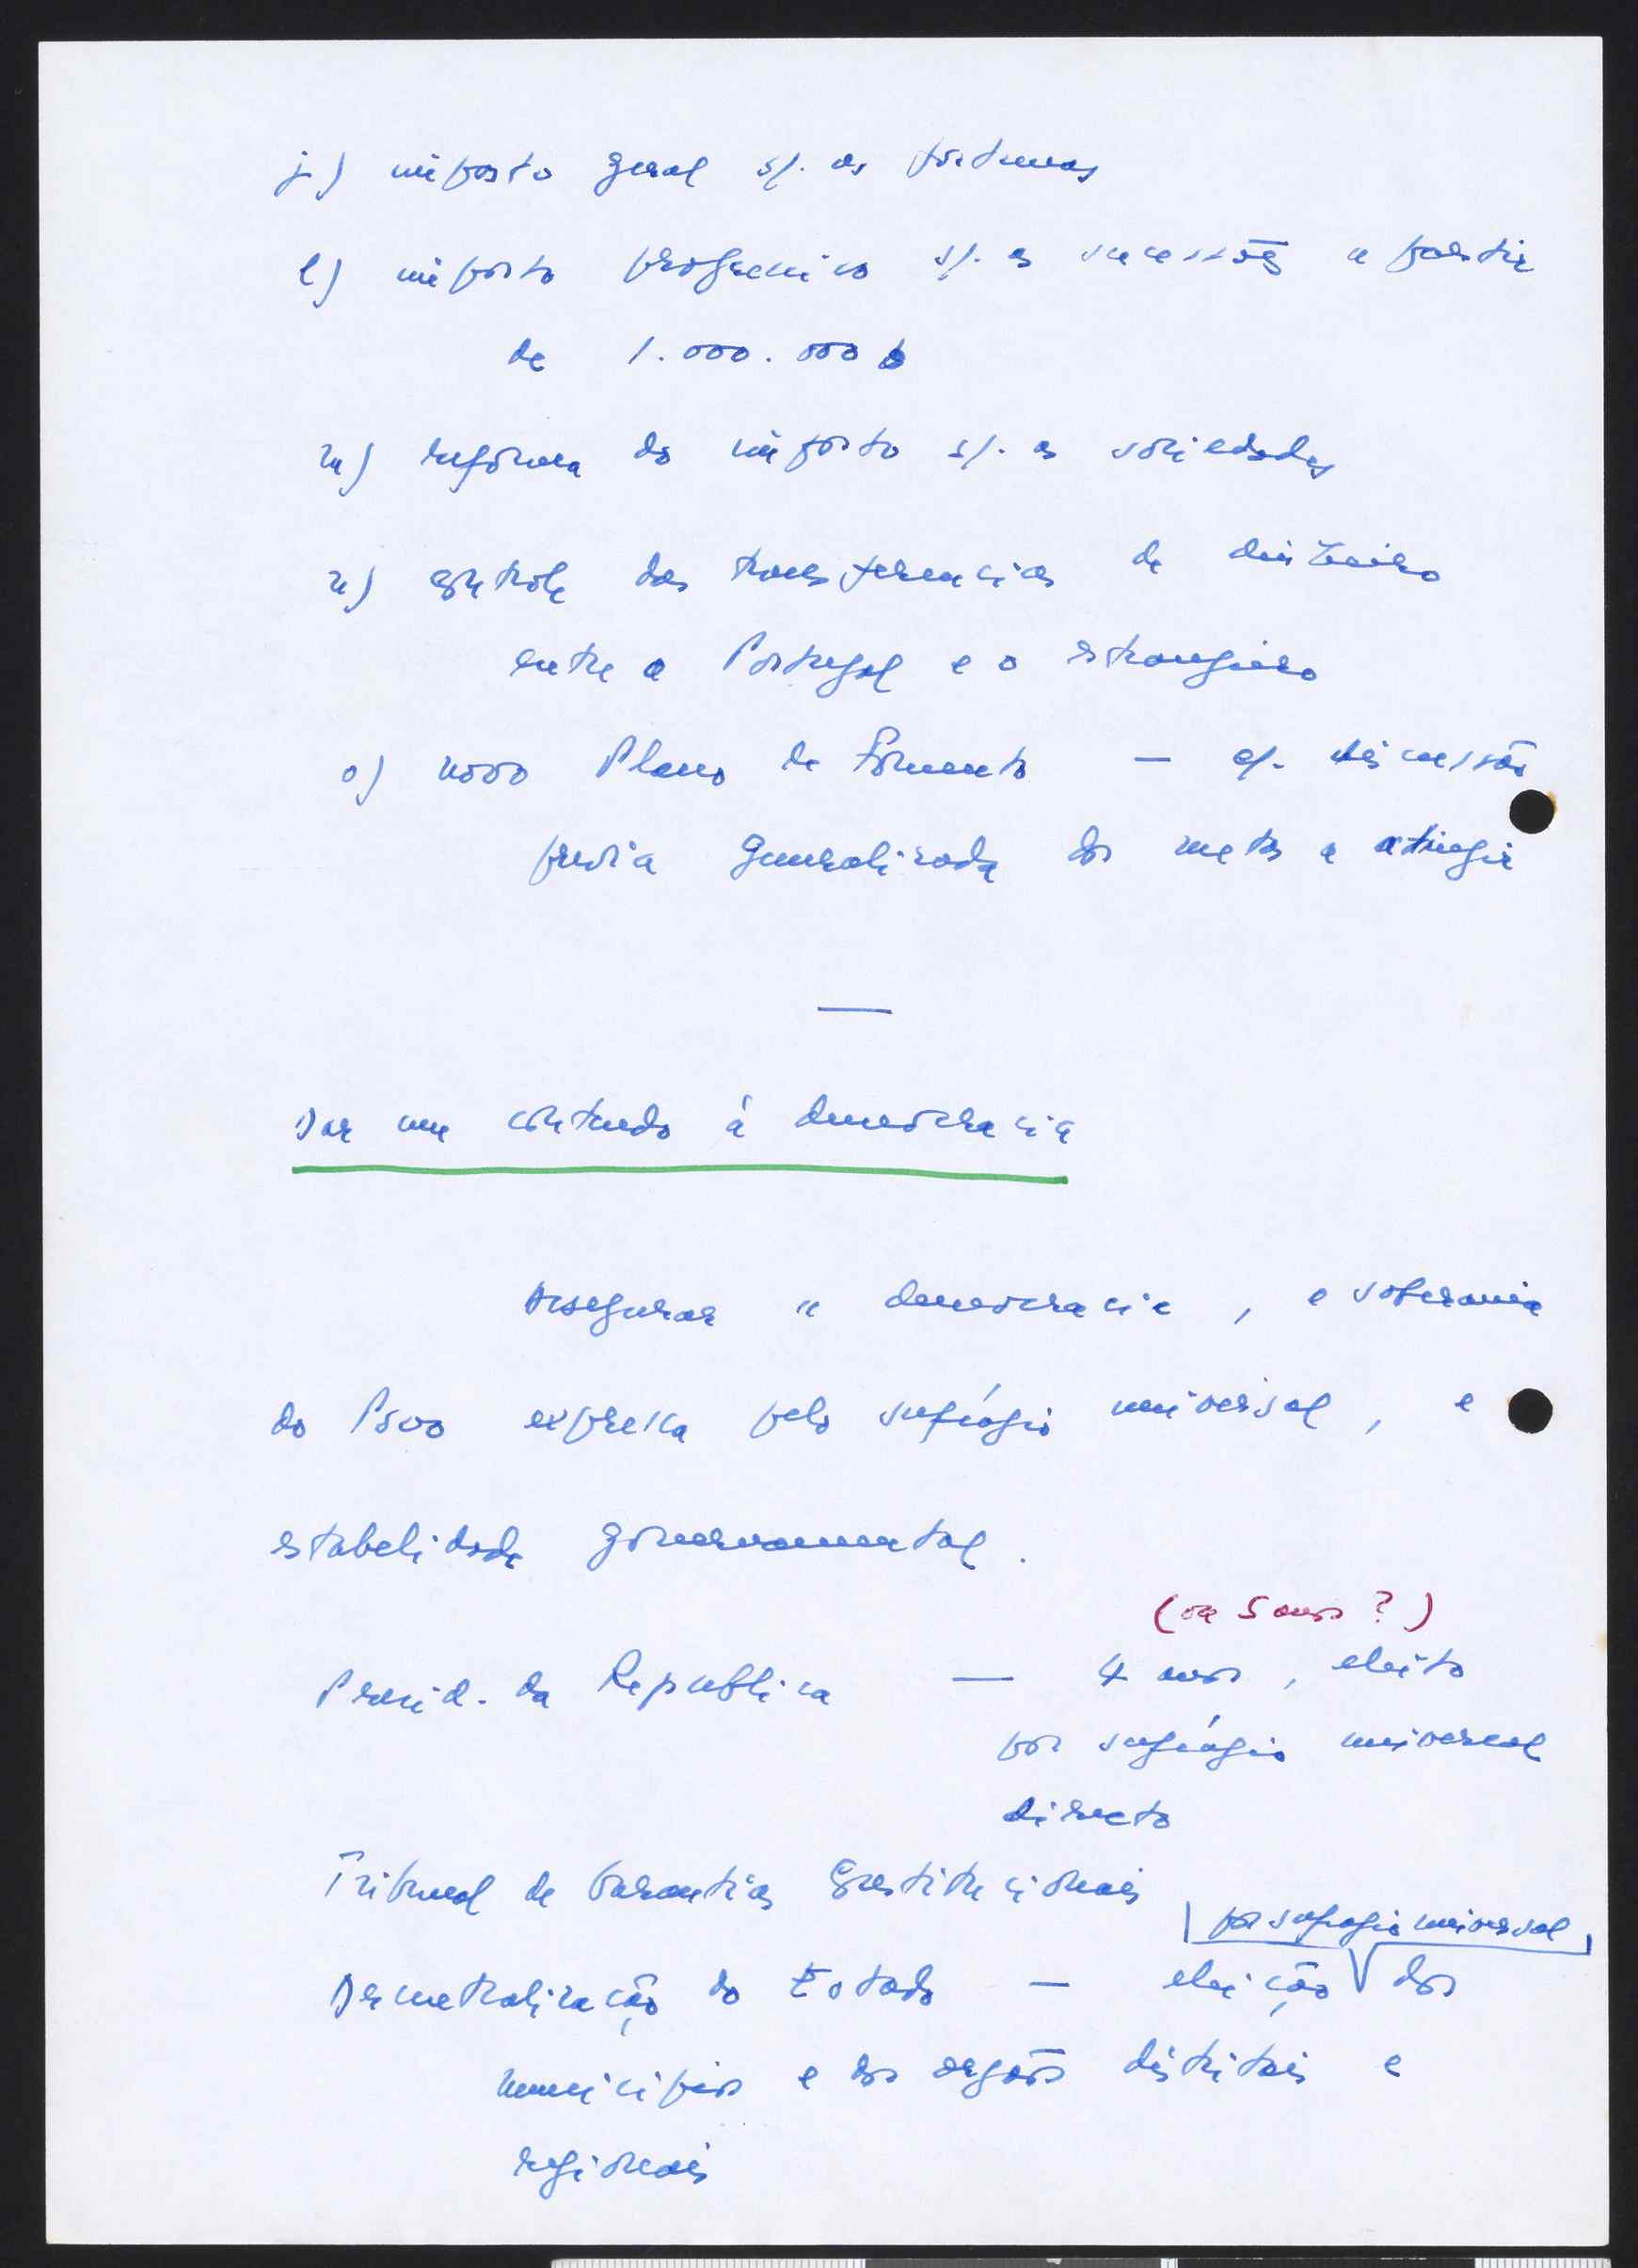 j) imposto geral s/. as fortunas
l) imposto progressivo s/. as sucessões a partir
de 1.000.000$
m) reforma do imposto s/. as sociedades
n) controle das transferencias de dinheiro
entre o Portugal e o estrangeiro
o) novo Plano de Fomento — c/. discussão
previa generalizada das metas a atingir
—
Dar um conteudo à democracia
Assegurar a democracia, a soberania
do Povo expressa pelo sufrágio universal, e
estabelidade governamental.
(ou 5 anos?)
Presid. da Republica — 4 anos, eleito
por sufrágio universal
directo
Tribunal de Garantias Constitucionais
por sufragio universal
Descentralização do Estado — eleição dos
municipios e dos orgãos distritais e
regionais